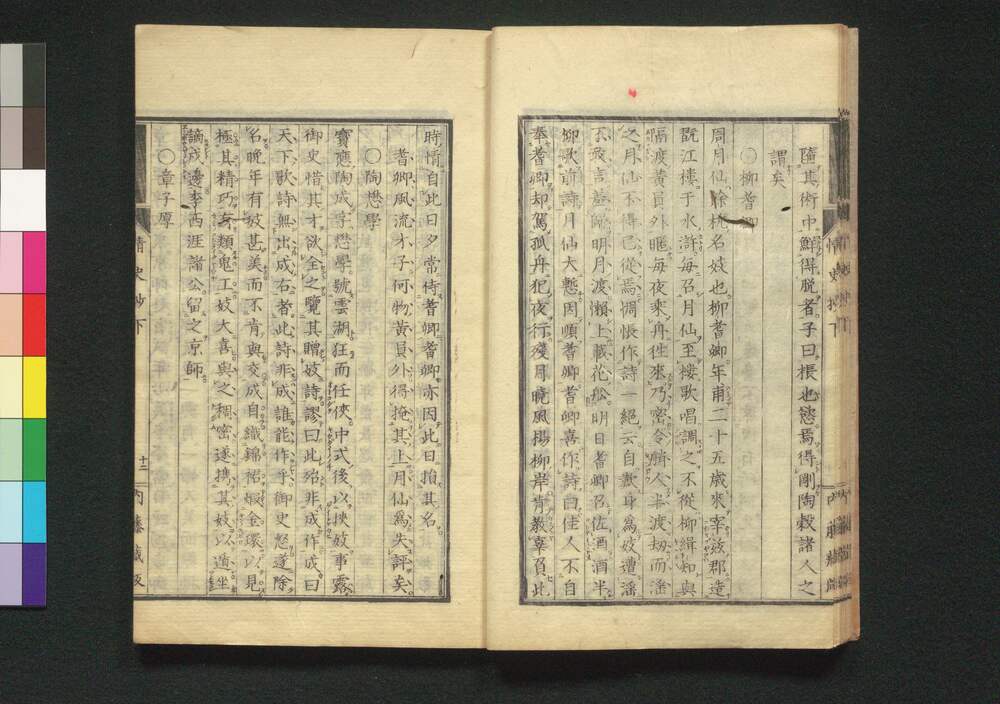 墮其術中鮮得脱者子曰棖也慾焉得剛陶穀諸人之
謂矣
〇柳耆卿
周月仙餘杭名妓也柳耆卿年甫二十五歳來宰茲郡造
翫江樓于水滸毎召月仙至樓歌唱調之不從柳緝知與
隔渡黄員外暱毎夜乘舟徃來乃密令艄人半渡刼而滛
之月仙不得已從焉惆悵作詩一絶云自歎身爲妓遭滛
不敢言羞歸明月渡懶上載花船明日耆卿召佐酒酒半
柳歌前詩月仙大慙因順耆卿耆卿喜作詩曰佳人不自
奉耆卿却駕孤舟犯夜行殘月曉風楊柳岸肯敎辜負此
時情自此日夕常侍耆卿耆卿亦因此日損其名
耆卿風流才子何物黄員外得掩其上月仙爲失評矣
〇陶懋學
寳應陶成字懋學號雲湖狂而任俠中式後以挾妓事露
御史惜其才欲全之覽其贈妓詩謬曰此殆非成作成曰
天下歌詩無出成右者此詩非成誰能作乎御史怒遂除
名晩年有妓甚美而不肯與交成自織錦裙煆金環以見
極其精巧妓類鬼工妓大喜與之稠密遂携其妓以遁坐
謫戍邊李西涯諸公留之京師
〇章子厚
情史抄下
十二
内藤藏板
情史抄下